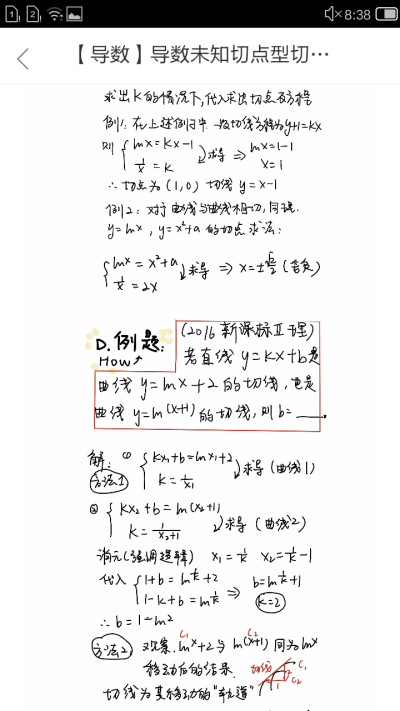 1 2 8:38
【导数】导数未知切点型切…
求出K的情况下,代入求出切点及方程
例1:在上述例子中.一设切线方程为y+1=kx
则 { lnx=kx-1 1/x=k 求导 ⇒ lnx=1-1 x=1
∴切点为(1,0) 切线 y=x-1
例2:对于曲线与曲线相切,同理.
y=lnx,y=x²+a 的切点求法:
{ lnx=x²+a 1/x=2x 求导 ⇒ x=±√2/2 (舍负)
D.例题: How↗
(2016新课标Ⅱ理)
若直线 y=kx+b是
曲线 y=lnx+2的切线,也是
曲线 y=ln(x+1)的切线,则b=____.
解: ① { kx₁+b=lnx₁+2 k=1/x₁ 求导(曲线1)
方法1
② { kx₂+b=ln(x₂+1) k=1/(x₂+1) 求导(曲线2)
消元(强调逻辑) x₁=1/k x₂=1/k-1
代入 { 1+b=ln1/k+2 1-k+b=ln1/k ⇒ b=ln1/k+1 k=2
∴b=1-ln2
方法2, 观察,lnx+2与ln(x+1)同为lnx
C₁ C₂
移动后的结果.
切线为其移动的"轨道"
切线 C₁ C₂ 2 1